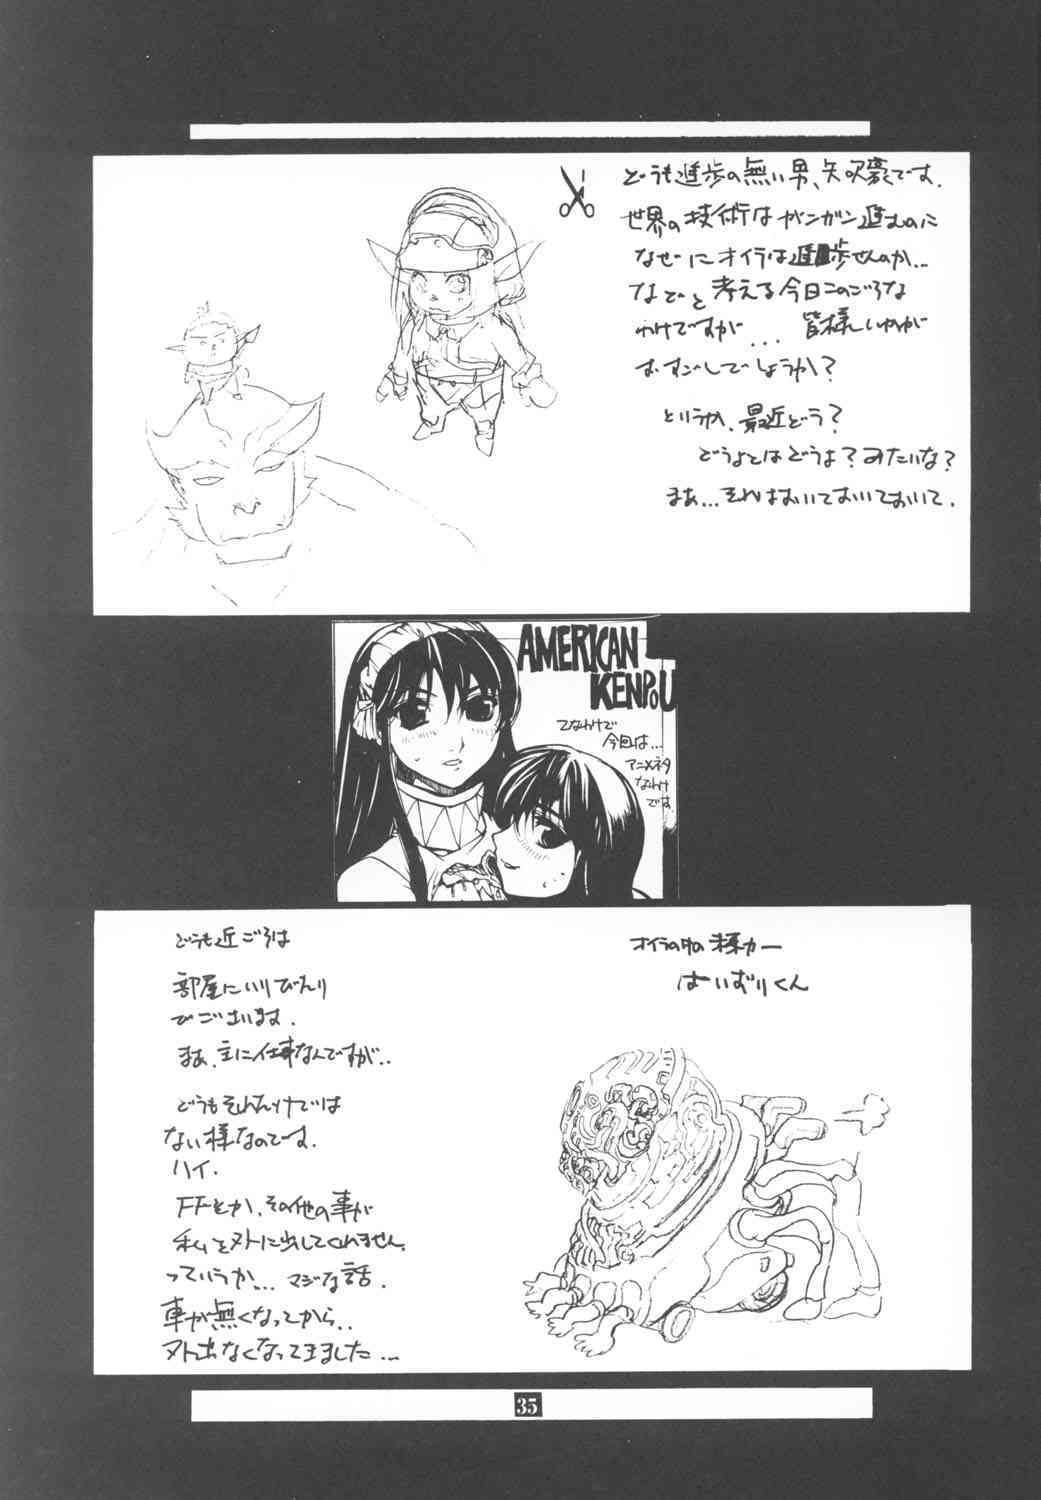 どうも進歩の無い男、矢吹豪です。
世界の技術はガンガン進むのに
なぜにオイラは進歩せんのか…
などと考える今日このごろな
わけですが… 皆様いかが
おすごしでしょうか？
というか、最近どう？
どうよとはどうよ？みたいな？
まあ…それはおいておいておいて。
AMERICAN
KENPOU
てなわけで
今回は…
アニメネタ
なわけ
です
どうも近ごろは
部屋にいりびたり
でございます。
まあ、主に仕事なんですが..
どうもそれだけでは
ない様なのです。
ハイ.
FFとか、その他の事が
私を外に出してくれません。
っていうか… マジな話.
車が無くなってから..
外出なくなってきました…
オイラの中の
カー
はいずりくん
35